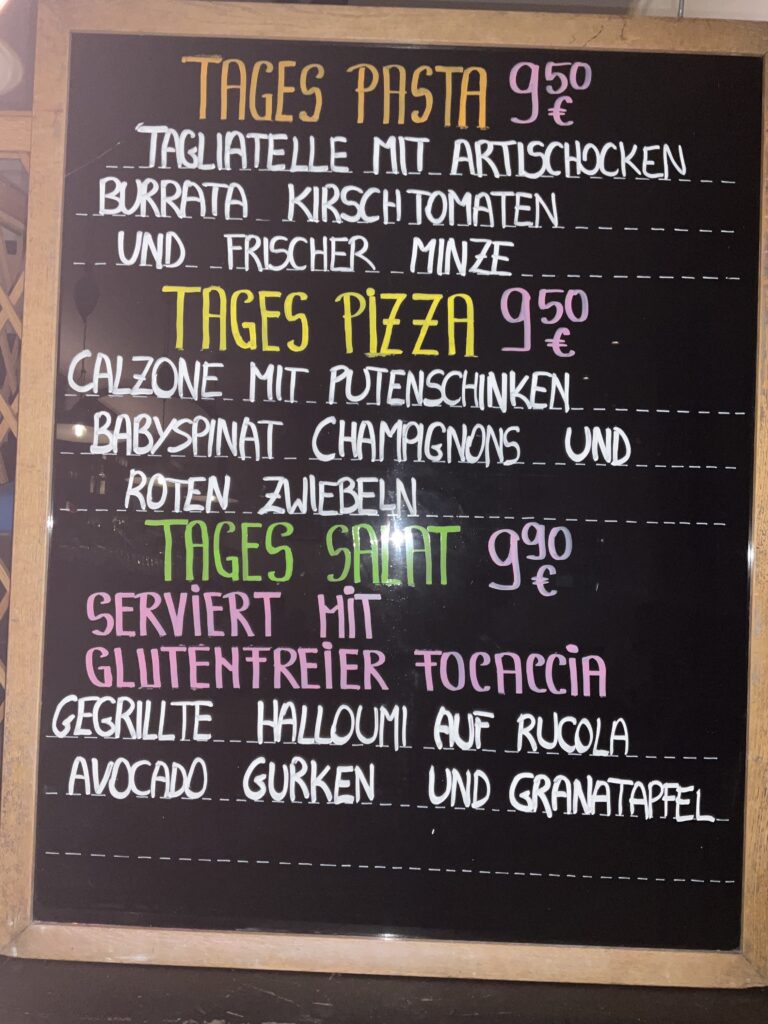 TAGES PASTA 950 €
TAGLIATELLE MIT ARTISCHOCKEN
BURRATA KIRSCHTOMATEN
UND FRISCHER MINZE
TAGES PIZZA 950 €
CALZONE MIT PUTENSCHINKEN
BABYSPINAT CHAMPIGNONS UND
ROTEN ZWIEBELN
TAGES SALAT 990 €
SERVIERT MIT
GLUTENFREIER FOCACCIA
GEGRILLTE HALLOUMI AUF RUCOLA
AVOCADO GURKEN UND GRANATAPFEL